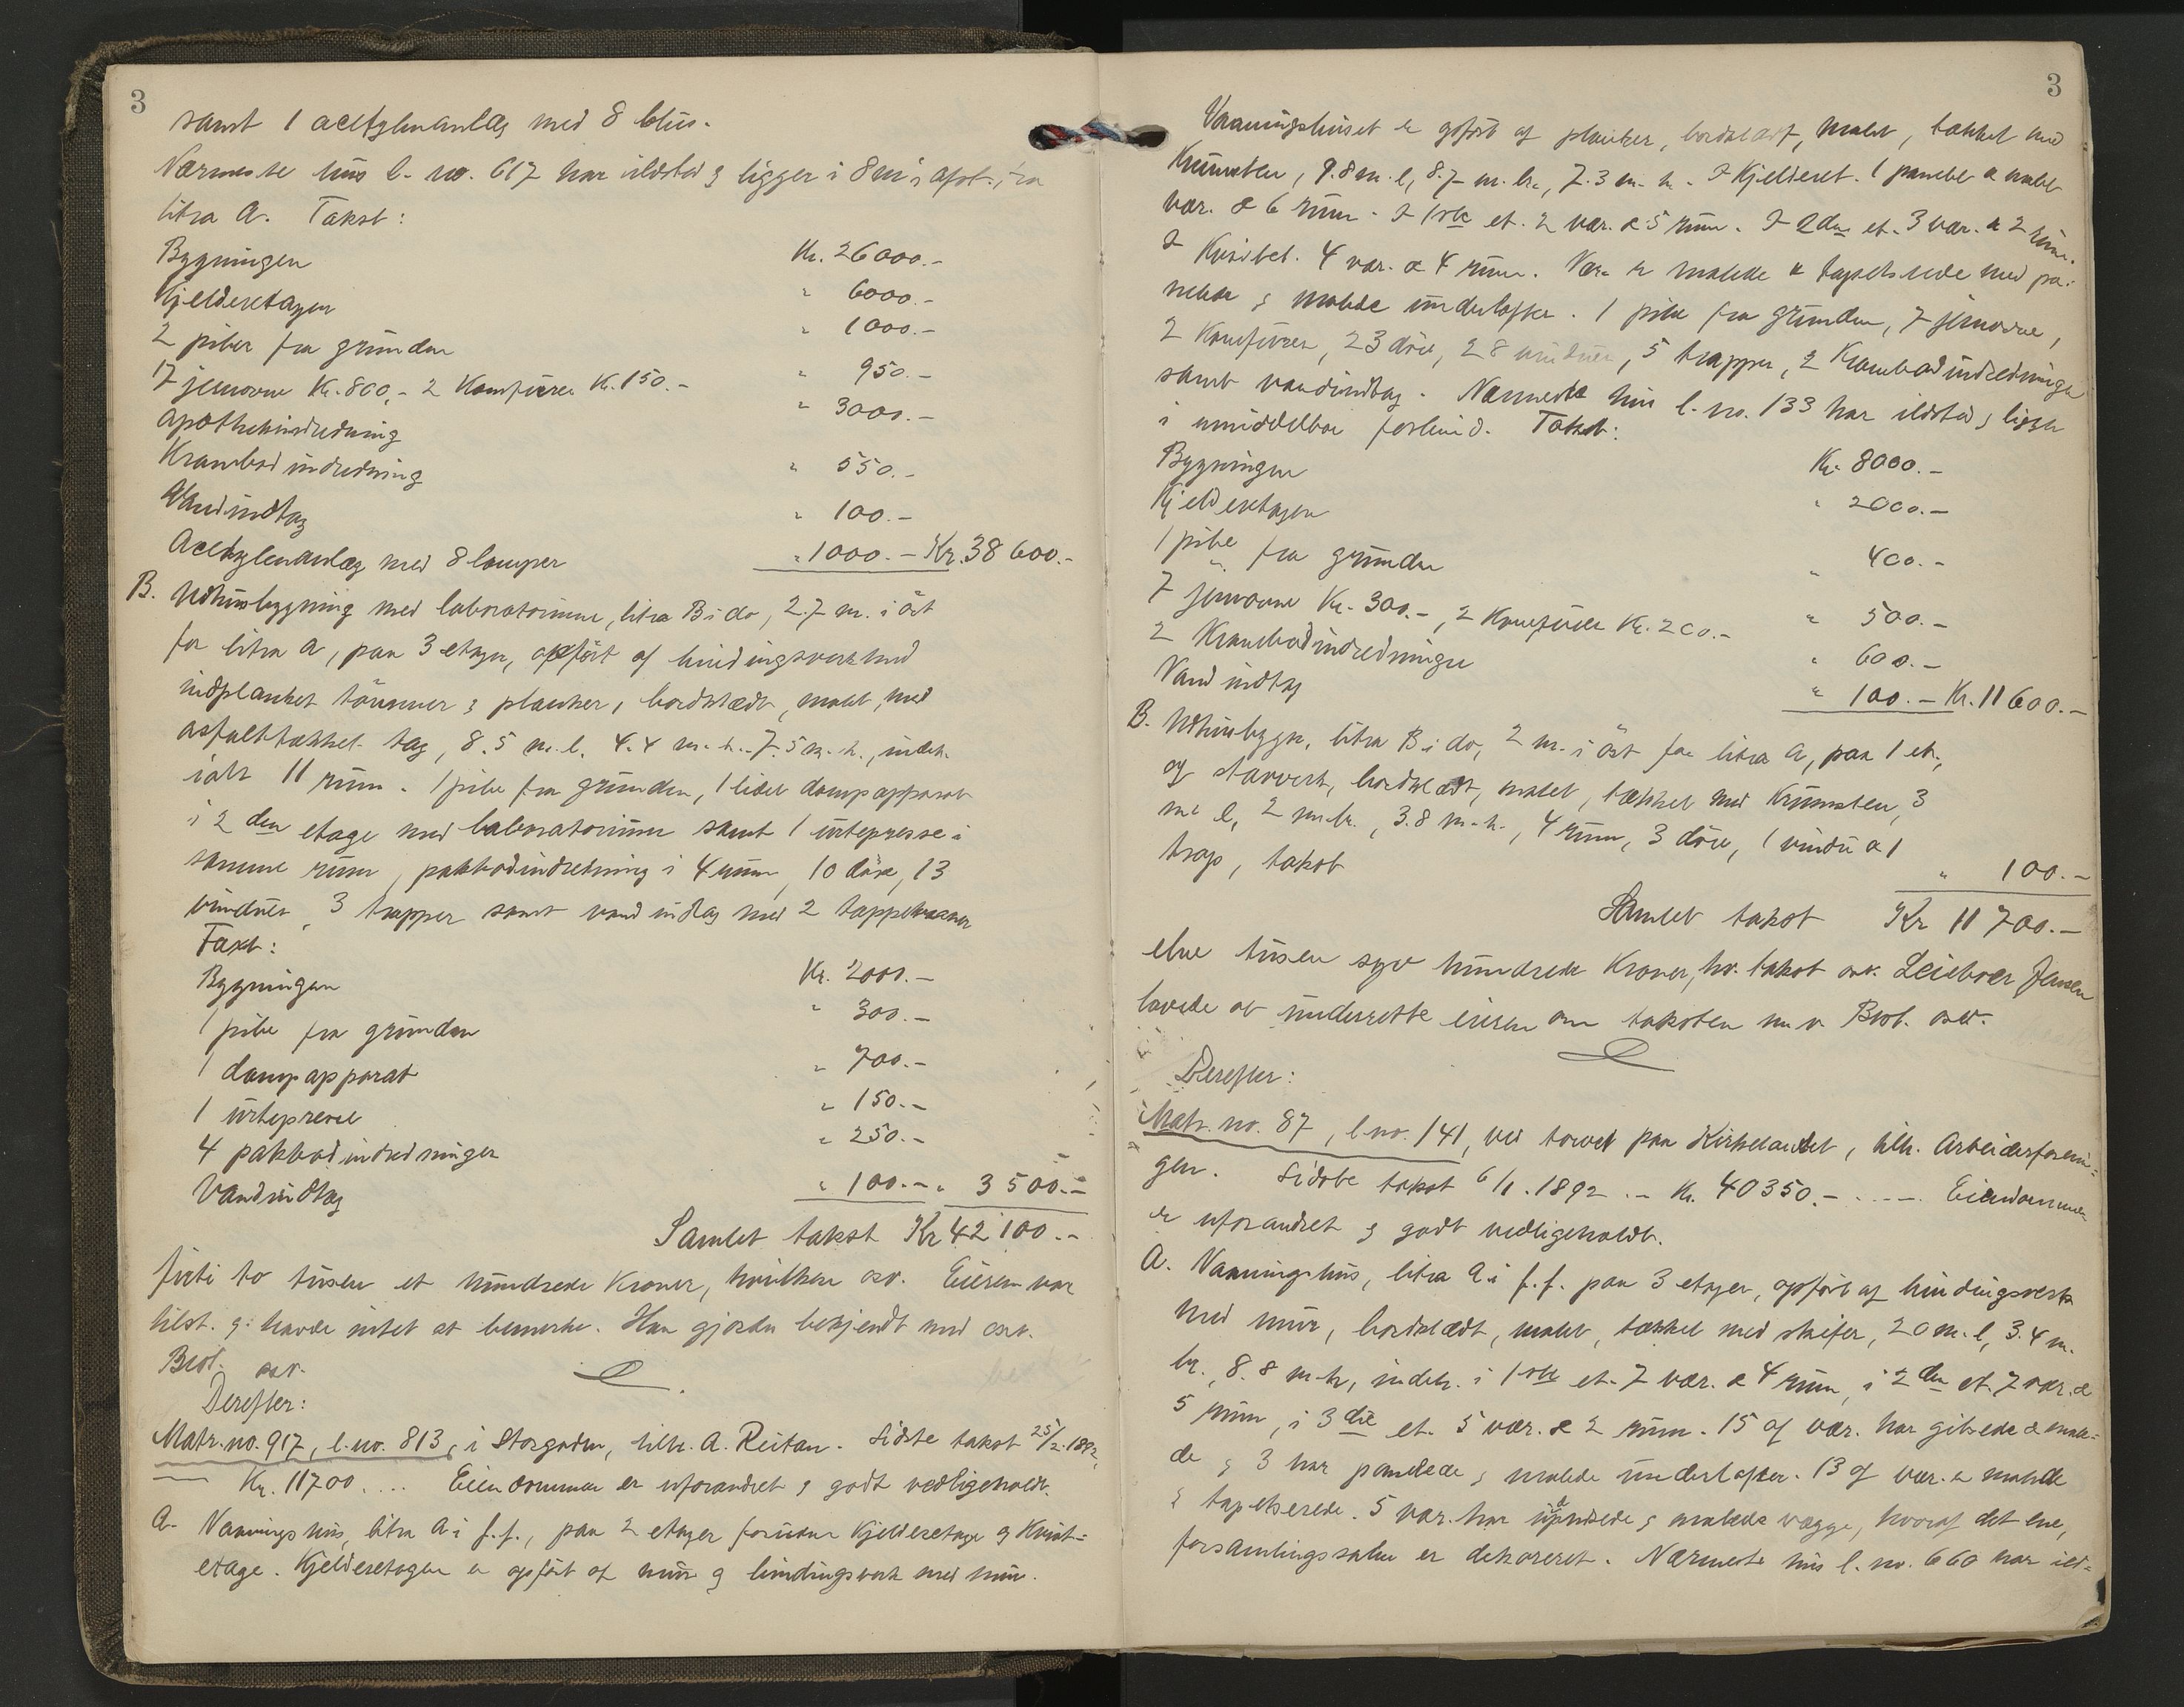 3
samt 1 acetylenanlæg med 8 blus.
Nærmeste hus l. no. 617 har ildsted & ligger i 8 m's afst. fra
litra A. Takst:
Bygningen Kr. 26000.-
Kjelderetagen " 6000.-
2 piber fra grunden " 1000.-
17 jernovne Kr. 800,- 2 Komfurer Kr. 150.- " 950.-
Apothekindredning " 3000.-
Krambodindredning " 550.-
Vandindtag " 100.-
Acetylenanlæg med 8 lamper " 1000.- Kr. 38600.-
B. Udhusbygning med laboratorium, litra B i do, 2.7 m. i öst
for litra A, paa 3 etager, opfört af bindingsverk med
indplanket tömmer & planker, bordklædt, malet, med
asfalttækket tag, 8.5 m. l. 4.4 m. b. 7.5 m. h., indeh.
ialt 11 rum. 1 pibe fra grunden, 1 lidet dampapparat
i 2den etage med laboratorium samt 1 urtepresse i
samme rum, pakbodindredning i 4 rum, 10 döre, 13
vinduer, 3 trapper samt vandindtag med 2 tappekraner
Taxt:
Bygningen Kr. 2000.-
1 pibe fra grunden " 300.-
1 dampapparat " 700.-
1 urtepresse " 150.-
4 pakbodindredninger " 250.-
Vandindtag " 100.- " 3500.-
Samlet takst Kr 42100.-
firti to tusen et hundrede Kroner, hvilken osv. Eieren var
tilst. & havde intet at bemerke. Han gjordes bekjendt med osv.
Brol. osv.
Derefter:
Matr. no. 917, l. no. 813, i Storgaden, tilh. A. Reitan. Sidste takst 25/2.1892,
— Kr. 11700.... Eiendommen er uforandret & godt vedligeholdt.
A. Vaaningshus, litra A i f.f., paa 2 etager foruden Kjelderetage og Kvist=
etage. Kjelderetagen er opfört af mur og bindingsverk med mur.
3
Vaaningshuset er opfört af planker, bordklædt, malet, tækket med
Krumsten, 9.8 m. l, 8.7 m. br., 7.3 m. h. I Kjelderet. 1 panelet & malet
vær. & 6 rum. I 1ste et. 2 vær. & 5 rum. I 2den et. 3 vær. & 2 rum.
I Kvistet. 4 vær. & 4 rum. Vær. er malede & tapetserede med pa=
nelede & malede underlofter. 1 pibe fra grunden, 7 jernovne,
2 Komfurer, 23 döre, 28 vinduer, 5 trapper, 2 Krambodindredninger
samt vandindtag. Nærmeste hus l. no. 133 har ildsted & ligger
i umiddelbar forbind. Takst:
Bygningen Kr. 8000.-
Kjelderetagen " 2000.-
1 pibe fra grunden " 400.-
7 jernovne Kr. 300.-, 2 Komfurer Kr. 200.- " 500.-
2 Krambodindredninger " 600.-
Vandindtag " 100.- Kr. 11600.-
B. Udhusbygn. litra B i do, 2 m. i öst for litra A, paa 1 et.,
af stavverk, bordklædt, malet, tækket med Krumsten, 3
m. l, 2 m. br., 3.8 m. h., 4 rum, 3 döre, 1 vindu & 1
trap, takst " 100.-
Samlet takst Kr 11700.-
elve tusen syv hundrede Kroner, hv. takst osv. Leieboer Jensen
lovede at underrette eieren om taksten m. v. Brol. osv.
Derefter:
Matr. no. 87, l. no. 141, ved torvet paa Kirkelandet, tilh. Arbeiderforenin=
gen. Sidste takst 6/1.1892 .- Kr. 40350.- ..... Eiendommen
er uforandret & godt vedligeholdt.
A. Vaaningshus, litra A i f.f. paa 3 etager, opfört af bindingsverk
med mur, bordklædt, malet, tækket med skifer, 20 m. l, 3.4 m.
br., 8.8 m. h, indeh. i 1ste et. 7 vær. & 4 rum, i 2den et. 7 vær. &
5 rum, i 3die et. 5 vær. & 2 rum. 15 af vær. har gibsede & male=
de & 3 har panelede & malede underlofter. 13 af vær. er malede
& tapetserede. 5 vær. har upudsede & malede vægge, hvoraf det ene,
forsamlingssalen er dekoreret. Nærmeste hus l. no. 660 har ild=